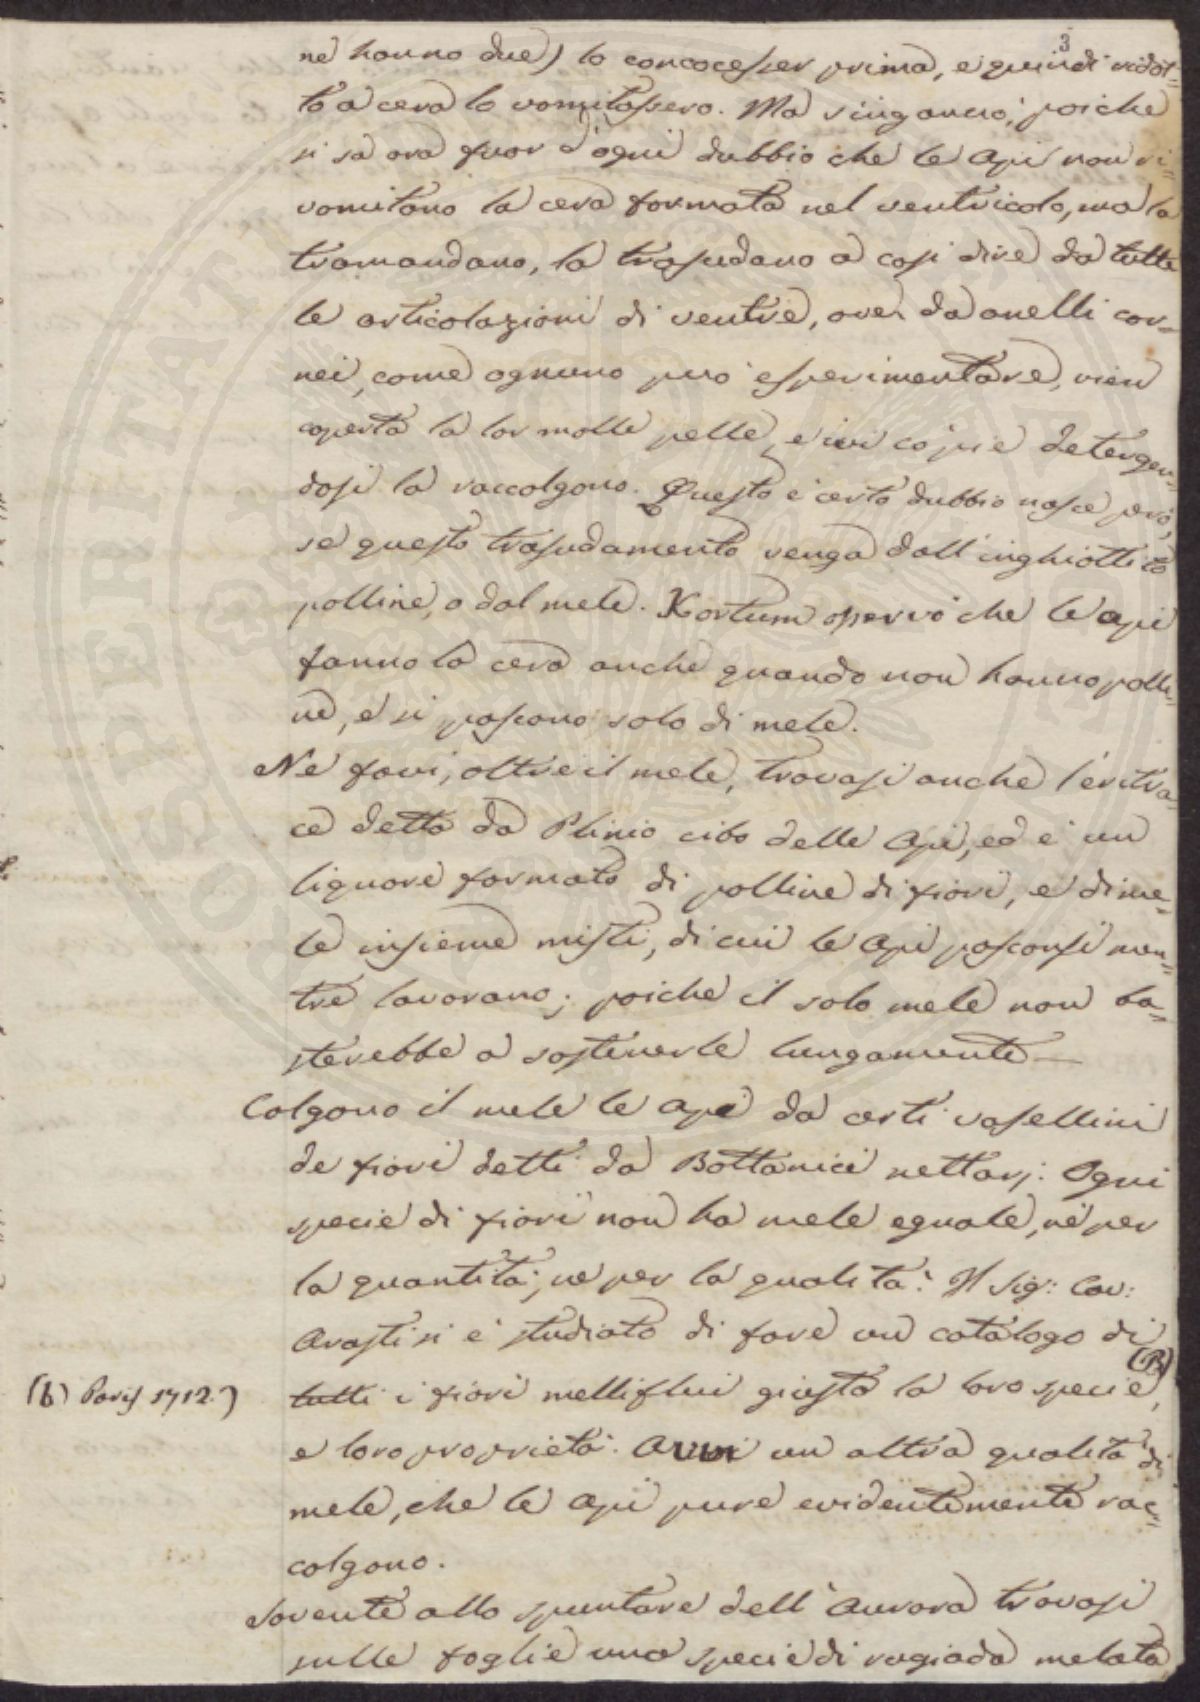 3
ne hanno due) lo concocesser prima, e quindi ridot=
to a cera lo vomitassero. Ma s'ingannò, poiche
si sa ora fuor d'ogni dubbio che le Api non ri=
vomitano la cera formata nel ventricolo, ma la
tramandano, la trasudano a così dire da tutte
le articolazioni di ventre, ove da anelli cor=
nei, come ognuno può esperimentare, vien
coperta la lor molle pelle, e ivi co' pie detergen=
dosi la raccolgono. Questo è certo dubbio nasce però,
se questo trasudamento venga dall'inghiottito
polline, o dal mele. Kortum osservò che le api
fanno la cera anche quando non hanno polli=
ne, e si pascono solo di mele.
Ne favi, oltre il mele, trovasi anche l'eritra=
ce detto da Plinio cibo delle Api, ed è un
liquore formato di polline di fiori, e di me=
le insieme misti, di cui le Api pasconsi men=
tre lavorano; poiche il solo mele non ba=
sterebbe a sostenerle lungamente —
Colgono il mele le Api da certi vasellini
de fiori detti da Bottanici nettarj. Ogni
specie di fiori non ha mele eguale, nè per
la quantità, ne per la qualità. Il Sig: Cav:
Arasti si è studiato di fare un catalogo di
tutti i fiori melliflui giusta la loro specie, (B)
(b) Paris 1712.)
e loro proprietà. Avvi un altra qualità di
mele, che le Api pure evidentemente rac=
colgono.
Sovente allo spuntare dell'Aurora trovasi
sulle foglie una specie di rugiada melata